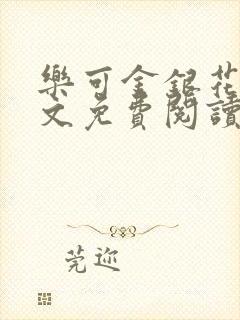 樂可金銀花
文免費閱讀
莞迩